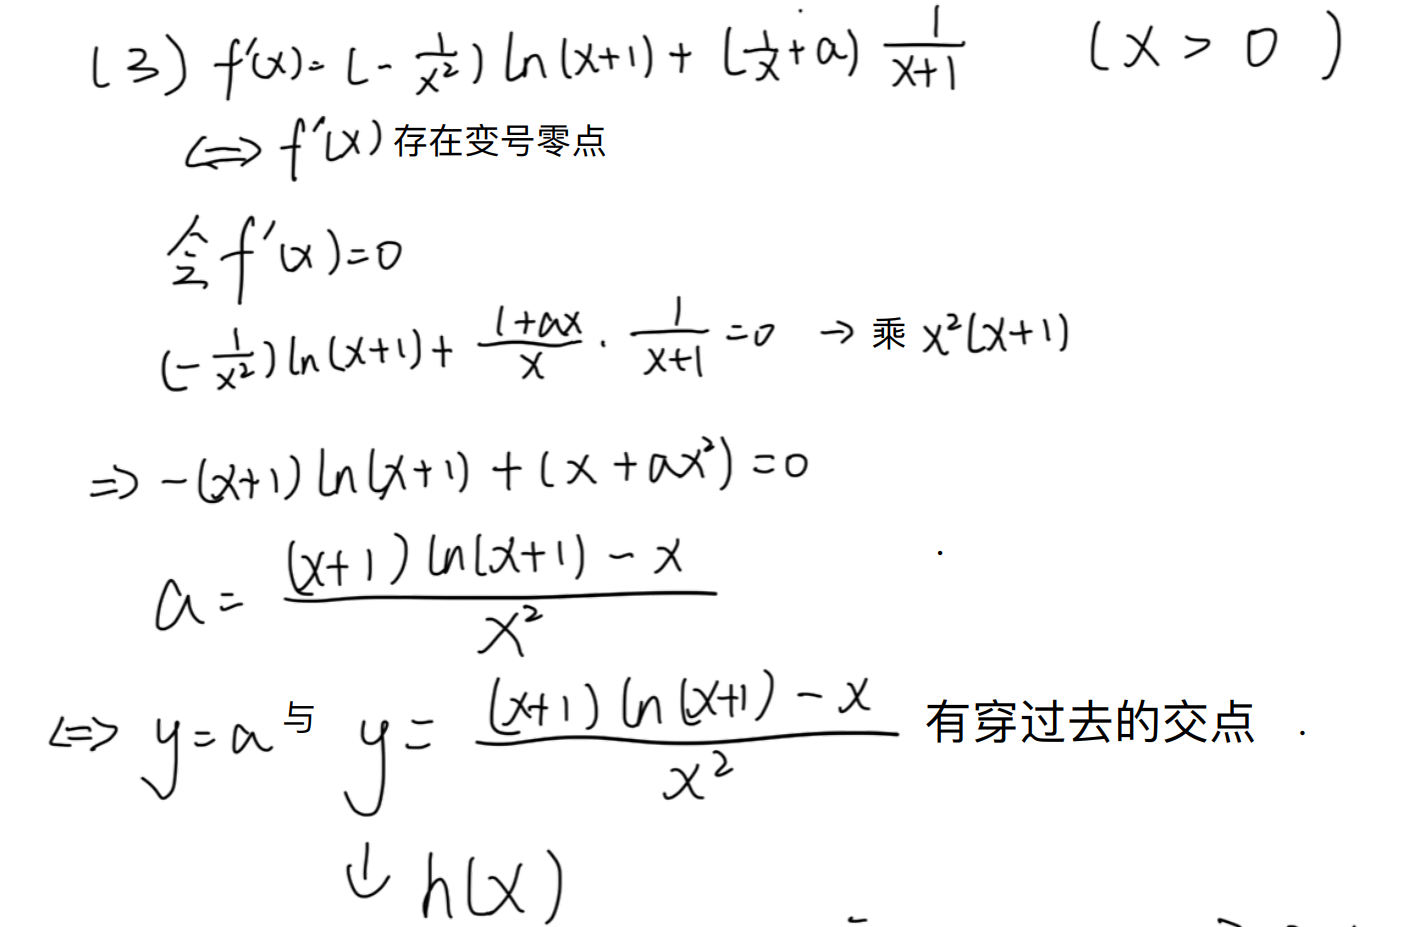 (3) f'(x)=(-1/x²)ln(x+1)+(1/x+a)1/(x+1) (x>0)
⇔ f'(x) 存在变号零点
令 f'(x)=0
(-1/x²)ln(x+1)+(1+ax)/x·1/(x+1)=0 → 乘 x²(x+1)
⇒ -(x+1)ln(x+1)+(x+ax²)=0
a=((x+1)ln(x+1)-x)/x²
⇔ y=a 与 y=((x+1)ln(x+1)-x)/x² 有穿过去的交点.
↓ h(x)